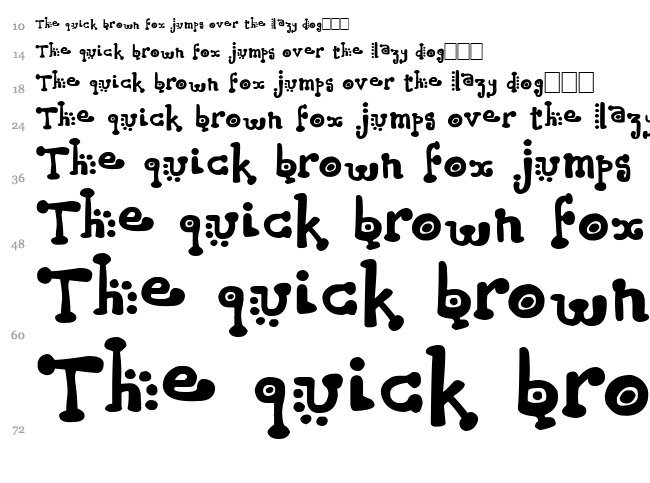 10 The quick brown fox jumps over the lazy dog□□□
14 The quick brown fox jumps over the lazy dog□□□
18 The quick brown fox jumps over the lazy dog□□□
24 The quick brown fox jumps over the lazy
36 The quick brown fox jumps
48 The quick brown fox
60 The quick brown
72 The quick bro